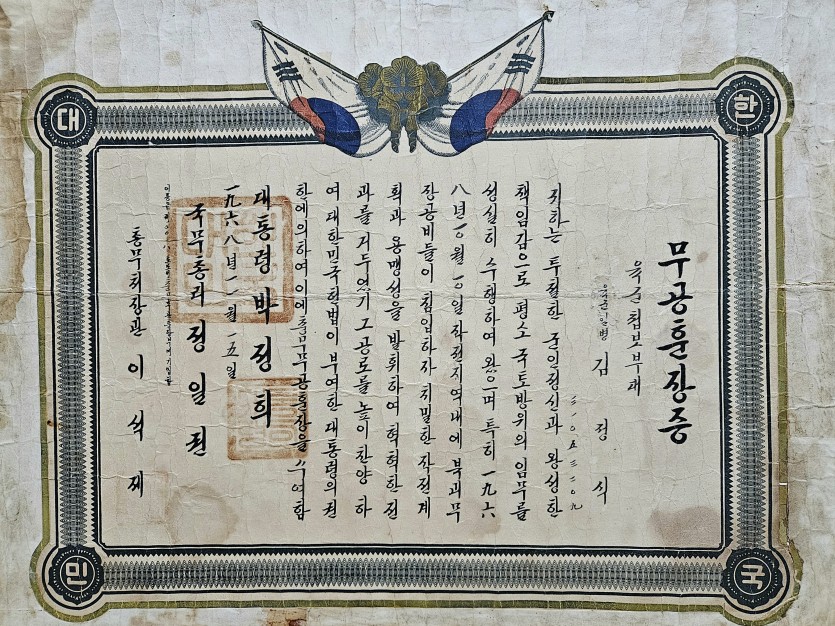 대 한
민 국
무공훈장증
육군첩보부대
육군일병 김 정 식
귀하는 투철한 군인정신과 왕성한
책임감으로 평소 국토방위의 임무를
성실히 수행하여 왔으며 특히 一九六
八년 一〇월 一〇일 작전지역내에 북괴무
장공비들이 침입하자 치밀한 작전계
획과 용맹성을 발휘하여 혁혁한 전
과를 거두었기 그 공로를 높이 찬양 하
여 대한민국헌법이 부여한 대통령의 권
한에의하여 이에 무공훈장을 수여함
대통령 박 정 희
一九六八년 一一월 一五일
국무총리 정 일 권
총무처장관 이 석 제